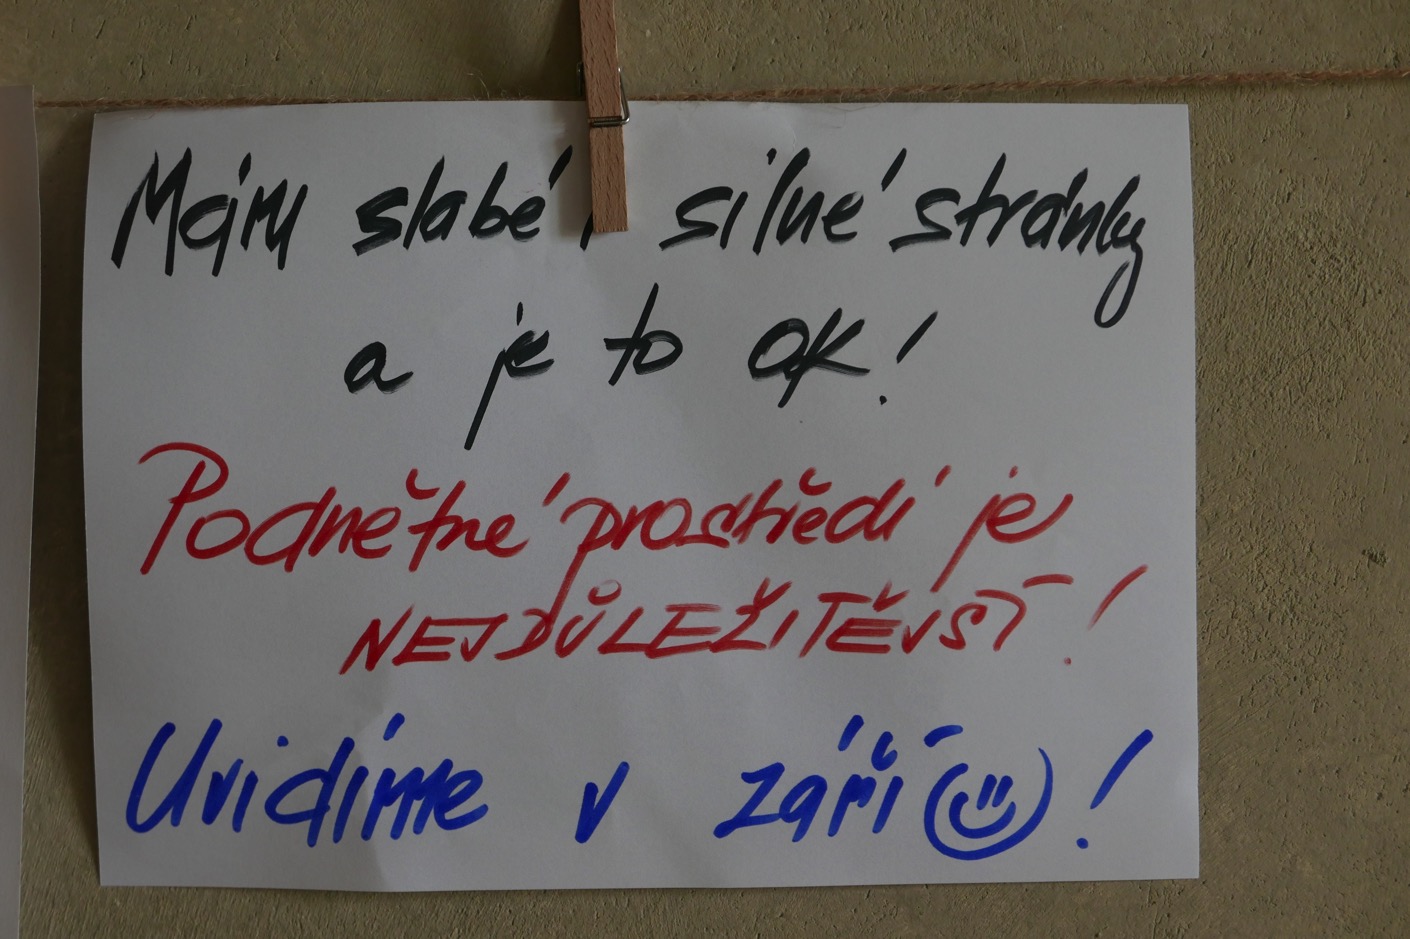 Mám slabé i silné stránky
a je to OK!
Podnětné prostředí je
NEJDŮLEŽITĚJŠÍ!
Uvidíme v září!